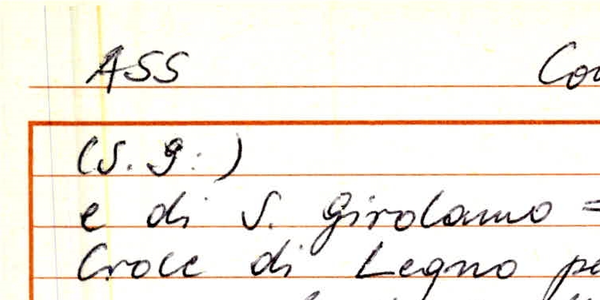 ASS
(S. g:)
e di S. Girolamo =
Croce di Legno